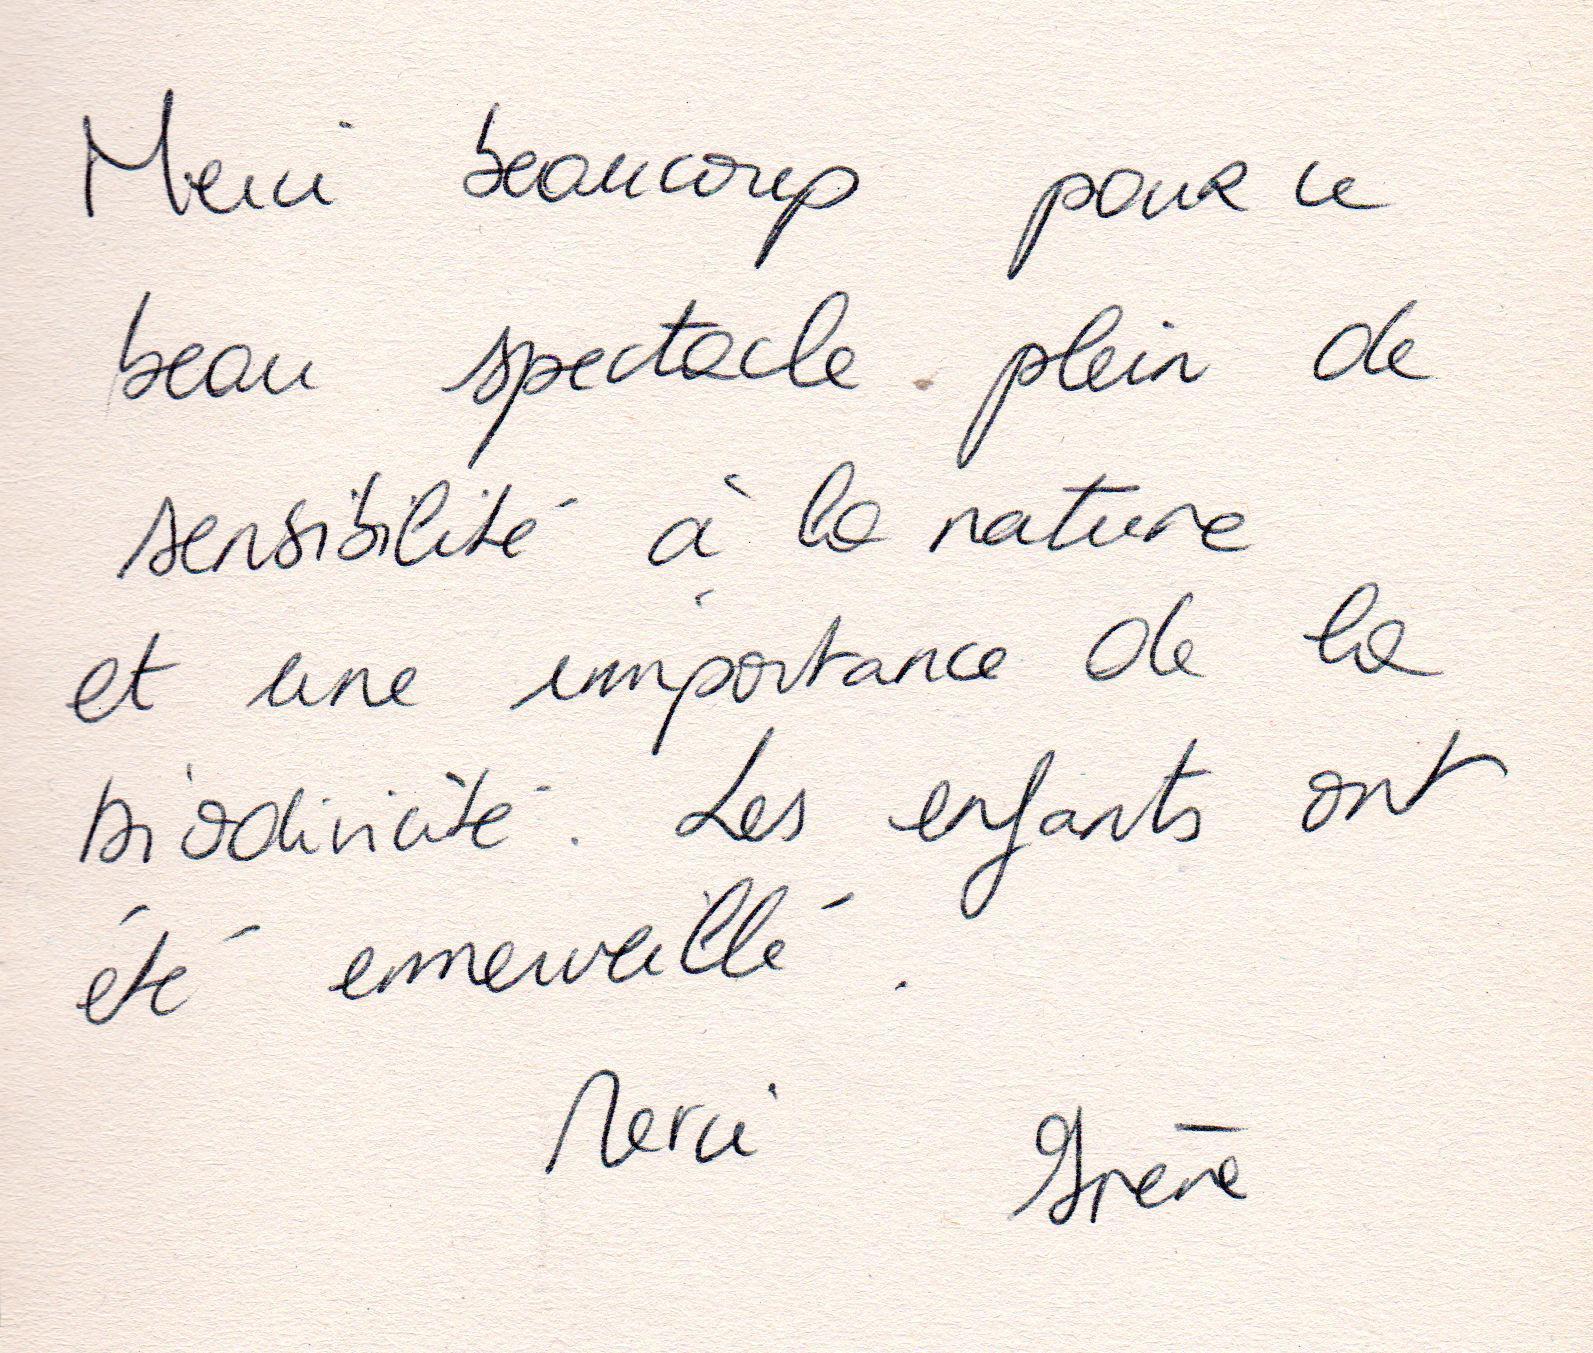 Merci beaucoup pour ce
beau spectacle plein de
sensibilité à la nature
et une importance de la
biodivicité. Les enfants ont
été emmerveillé.
Merci Irène